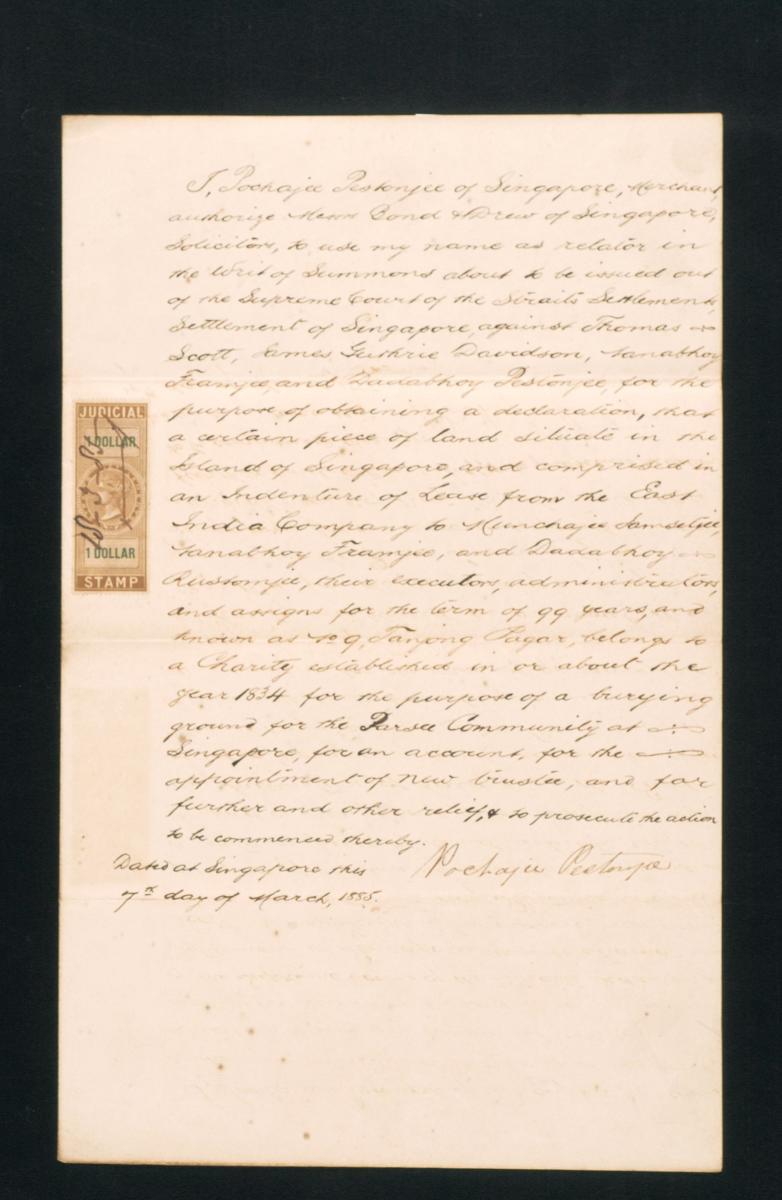 I, Pochajee Pestonjee of Singapore, Merchant,
authorize Messrs Bond & Drew of Singapore,
Solicitors, to use my name as relator in
the Writ of Summons about to be issued out
of the Supreme Court of the Straits Settlements,
Settlement of Singapore, against Thomas
Scott, James Guthrie Davidson, Nanabhoy
Framjee, and Dadabhoy Pestonjee, for the
purpose of obtaining a declaration, that
a certain piece of land situate in the
Island of Singapore, and comprised in
an Indenture of Lease from the East
India Company to Munchajee Jamsetjee,
Nanabhoy Framjee, and Dadabhoy
Rustomjee, their executors, administrators,
and assigns for the term of 99 years, and
known as No 9, Tanjong Pagar, belongs to
a Charity established in or about the
year 1834 for the purpose of a burying
ground for the Parsee Community at
Singapore, for an account, for the
appointment of new trustee, and for
further and other relief, & to prosecute the action
to be commenced thereby.
Dated at Singapore this
7th day of March, 1885.
Pochajee Pestonjee
JUDICIAL
1 DOLLAR
1 DOLLAR
STAMP